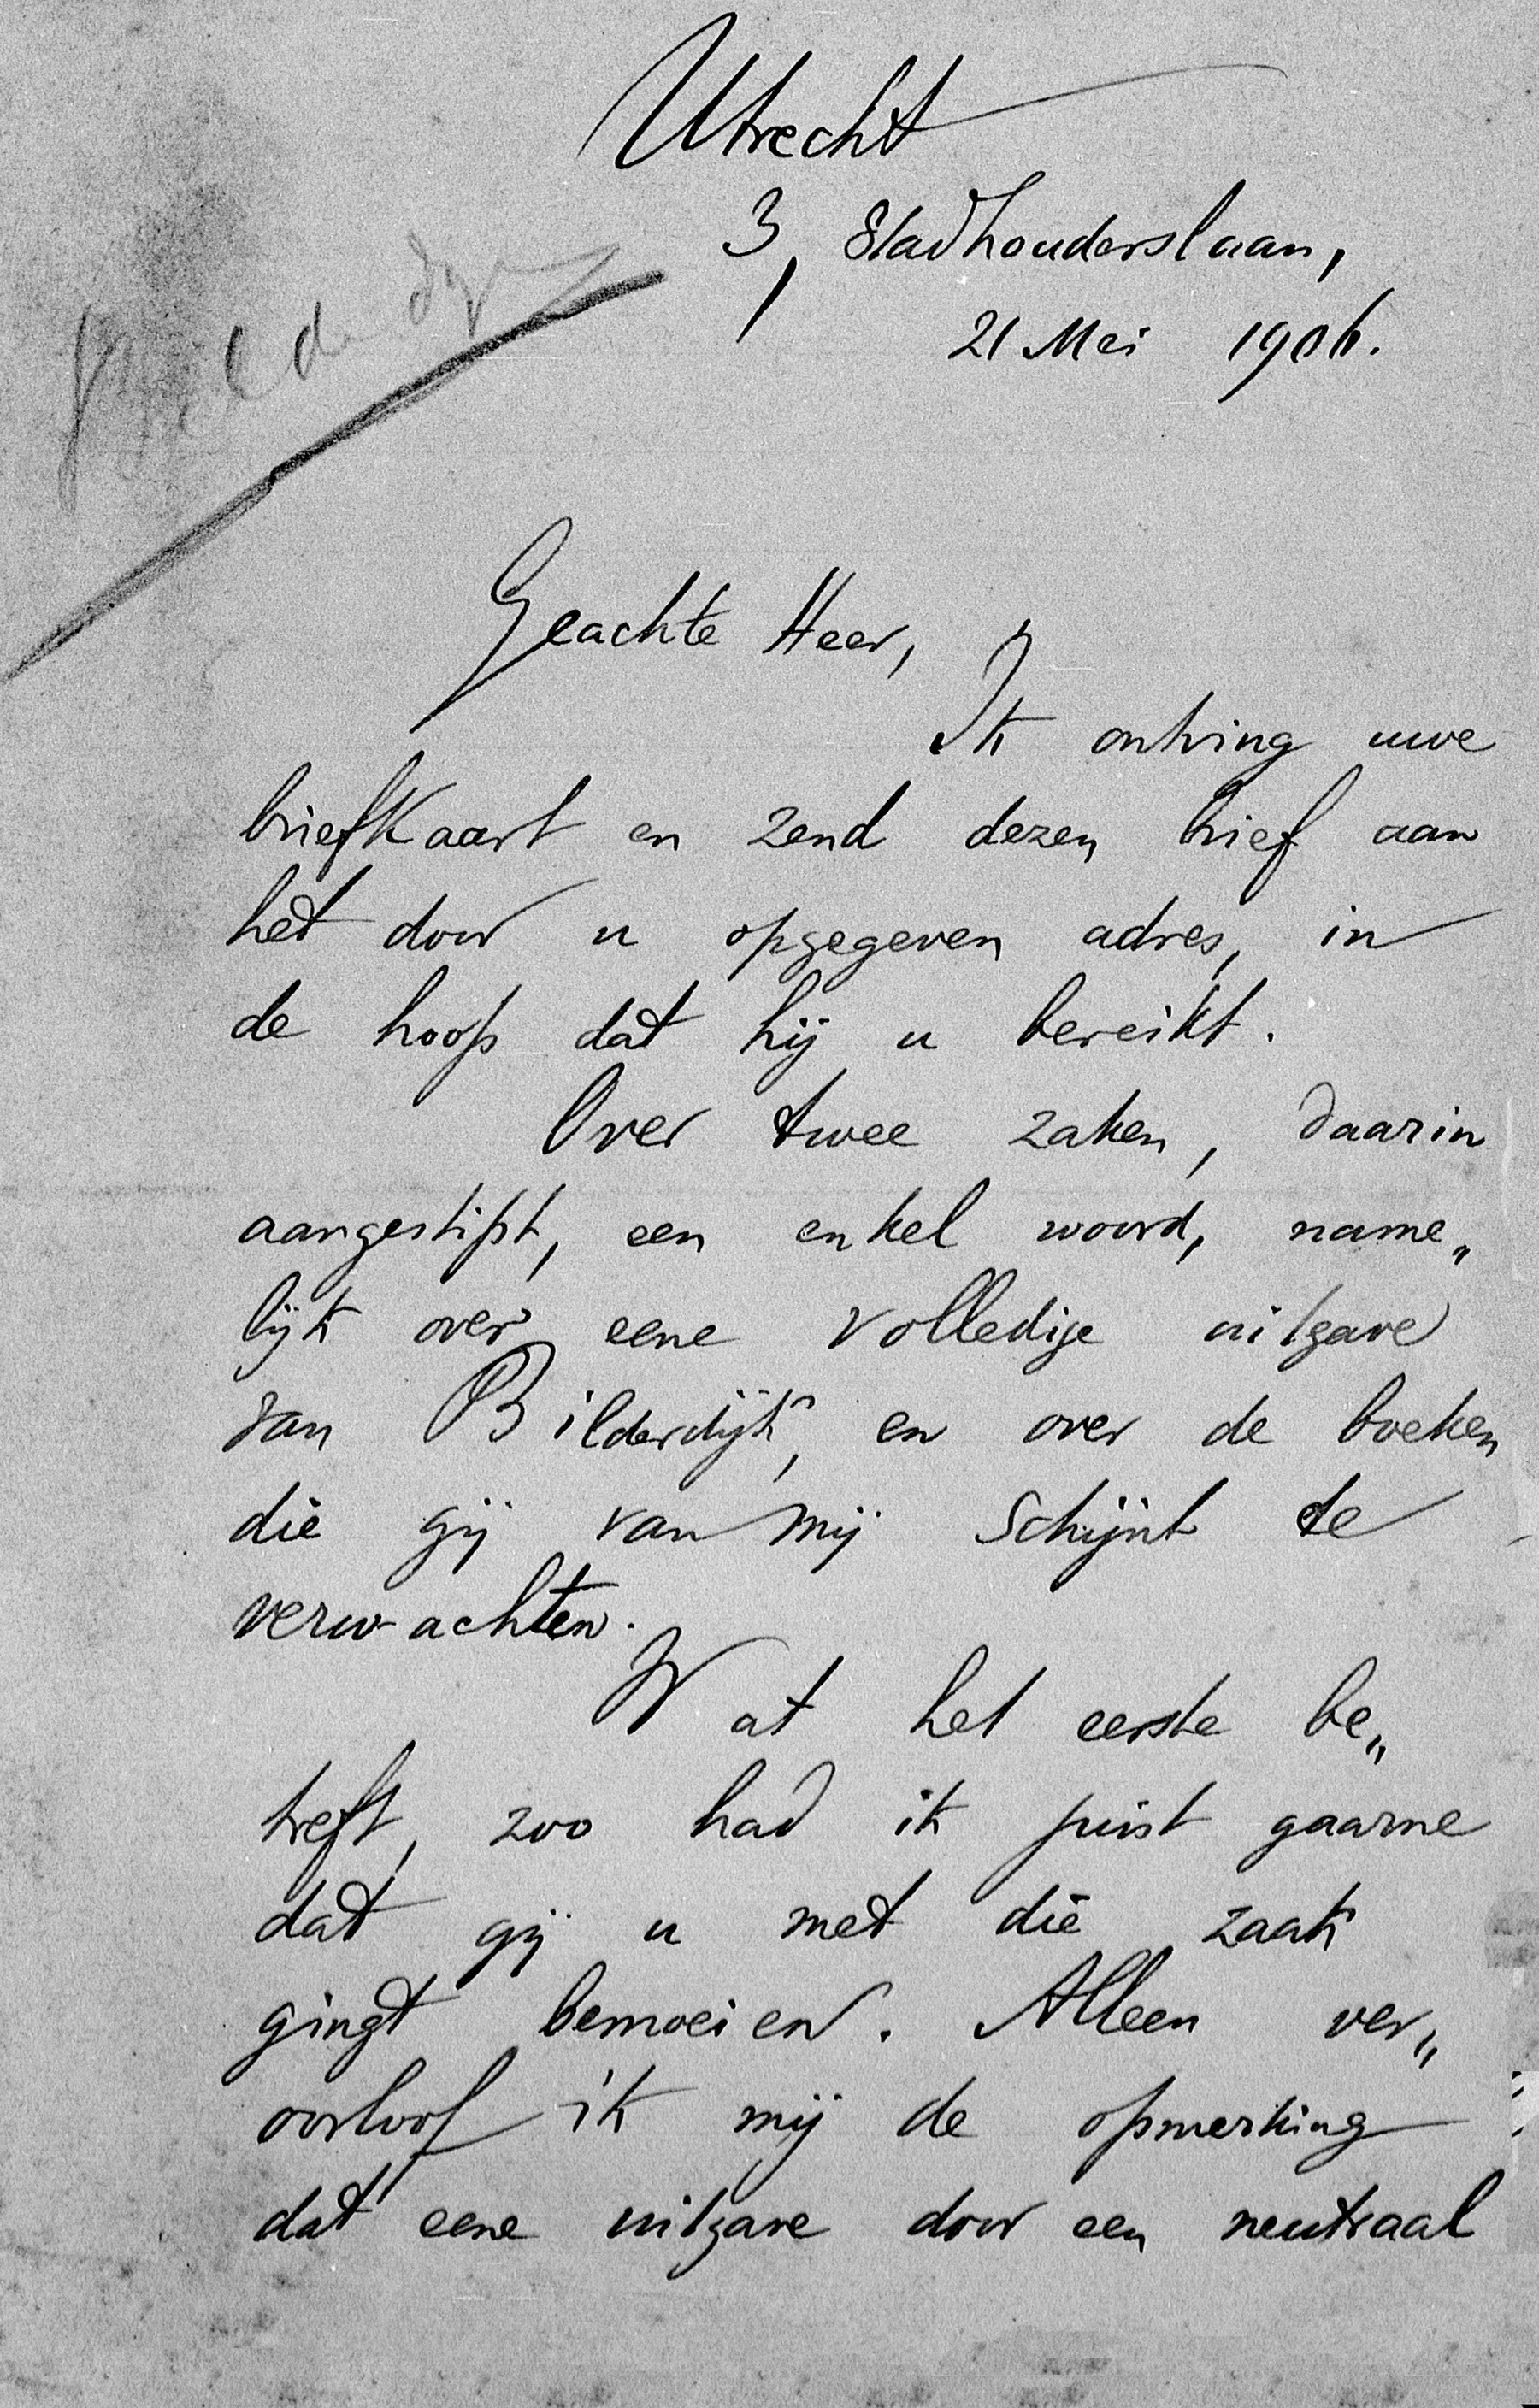 Utrecht
3, Stadhouderslaan,
21 Mei 1906.
Geachte Heer,
Ik ontving uwe
briefkaart en zend dezen brief aan
het door u opgegeven adres, in
de hoop dat hij u bereikt.
Over twee zaken, daarin
aangestipt, een enkel woord, name„
lijk over eene volledige uitgave
van Bilderdijk, en over de boeken
die gij van mij schijnt te
verwachten.
Wat het eerste be„
treft, zoo had ik juist gaarne
dat gij u met die zaak
gingt bemoeien. Alleen ver„
oorloof ik mij de opmerking
dat eene uitgave door een neutraal